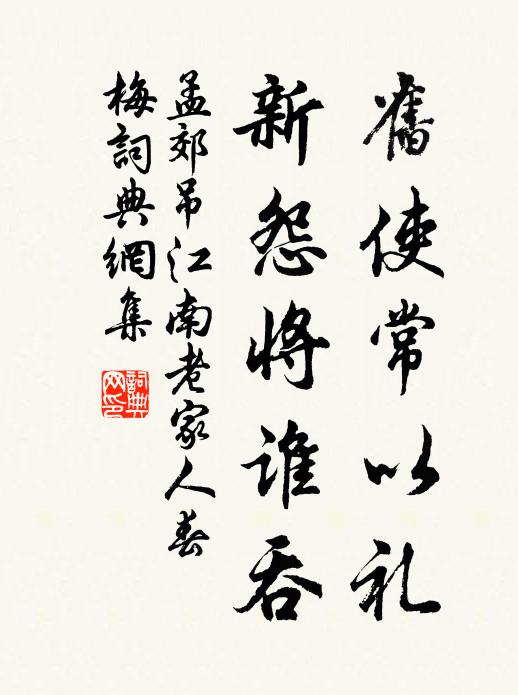 舊使常以礼
新怨將誰吞
孟郊吊江南老家人春
梅詞典網集
詞典
网印